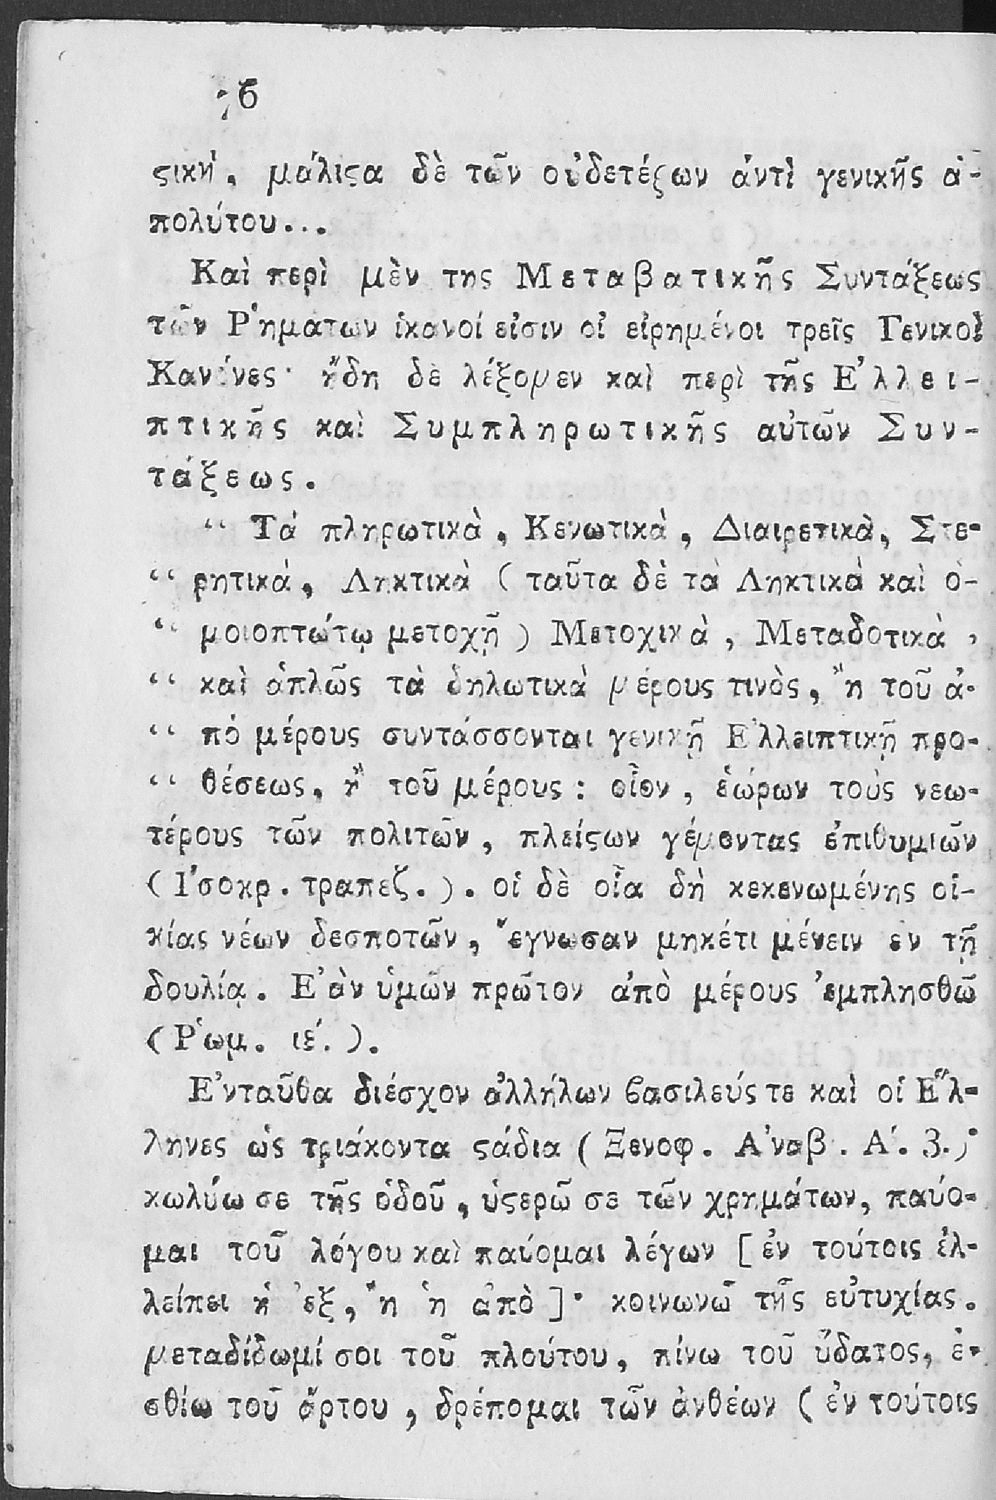 76
ϛικὴ, μάλιϛα δὲ τῶν οὐδετέρων ἀντὶ γενικῆς ἀ-
πολύτου...
Καὶ περὶ μὲν της Μεταβατικῆς Συντάξεως
τῶν Ῥημάτων ἱκανοί εἰσιν οἱ εἰρημένοι τρεῖς Γενικοὶ
Κανόνες· ἤδη δὲ λέξομεν καὶ περὶ τῆς Ἐλλει-
πτικῆς καὶ Συμπληρωτικῆς αὐτῶν Συν-
τάξεως.
“ Τὰ πληρωτικὰ, Κενωτικὰ, Διαιρετικὰ, Στε-
“ ρητικὰ, Ληκτικὰ (ταῦτα δὲ τὰ Ληκτικὰ καὶ ὁ-
“ μοιοπτώτῳ μετοχῇ) Μετοχικὰ, Μεταδοτικὰ,
“ καὶ ἁπλῶς τὰ δηλωτικὰ μέρους τινὸς, ἢ τοῦ ἀ-
“ πὸ μέρους συντάσσονται γενικῇ Ἐλλειπτικῇ προ-
“ θέσεως, ἢ τοῦ μέρους: οἷον, ἑώρων τοὺς νεω-
τέρους τῶν πολιτῶν, πλείϛων γέμοντας ἐπιθυμιῶν
(Ἰσοκρ. τραπεζ.). οἱ δὲ οἷα δὴ κεκενωμένης οἰ-
κίας νέων δεσποτῶν, ἔγνωσαν μηκέτι μένειν ἐν τῇ
δουλίᾳ. Ἐὰν ὑμῶν πρῶτον ἀπὸ μέρους ἐμπλησθῶ
(Ῥωμ. ιέ.).
Ἐνταῦθα διέσχον ἀλλήλων ϐασιλεύς τε καὶ οἱ Ἕλ-
ληνες ὡς τριάκοντα ϛάδια (Ξενοφ. Ἀναβ. Α΄. 3.)·
κωλύω σε τῆς ὁδοῦ, ὑϛερῶ σε τῶν χρημάτων, παύο-
μαι τοῦ λόγου καὶ παύομαι λέγων [ἐν τούτοις ἐλ-
λείπει ἡ ἐξ, ἢ ἡ ἀπὸ]· κοινωνῶ τῆς εὐτυχίας.
μεταδίδωμί σοι τοῦ πλούτου, πίνω τοῦ ὕδατος, ἐ-
σθίω τοῦ ἄρτου, δρέπομαι τῶν ἀνθέων (ἐν τούτοις